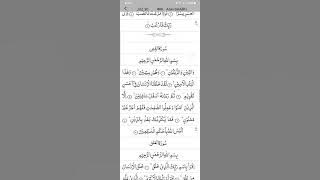 الْعُسْرِ يُسْرًا ۝ فَإِذَا فَرَغْتَ فَانصَبْ ۝ وَإِلَىٰ
رَبِّكَ فَارْغَب ۝
سُورَةُ التِّينِ
بِسْمِ اللَّهِ الرَّحْمَٰنِ الرَّحِيمِ
وَالتِّينِ وَالزَّيْتُونِ ۝ وَطُورِ سِينِينَ ۝ وَهَٰذَا
الْبَلَدِ الْأَمِينِ ۝ لَقَدْ خَلَقْنَا الْإِنسَانَ فِي أَحْسَنِ
تَقْوِيمٍ ۝ ثُمَّ رَدَدْنَاهُ أَسْفَلَ سَافِلِينَ ۝ إِلَّا
الَّذِينَ آمَنُوا وَعَمِلُوا الصَّالِحَاتِ فَلَهُمْ أَجْرٌ غَيْرُ
مَمْنُونٍ ۝ فَمَا يُكَذِّبُكَ بَعْدُ بِالدِّينِ ۝
أَلَيْسَ اللَّهُ بِأَحْكَمِ الْحَاكِمِينَ ۝
سُورَةُ الْعَلَقِ
بِسْمِ اللَّهِ الرَّحْمَٰنِ الرَّحِيمِ
اقْرَأْ بِاسْمِ رَبِّكَ الَّذِي خَلَقَ ۝ خَلَقَ الْإِنسَانَ